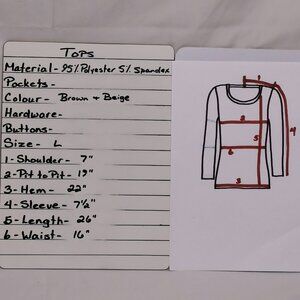 Tops
Material - 95% Polyester 5% Spandex
Pockets -
Colour - Brown + Beige
Hardware -
Buttons -
Size - L
1 - Shoulder - 7"
2 - Pit to Pit - 19"
3 - Hem - 22"
4 - Sleeve - 7½"
5 - Length - 26"
6 - Waist - 16"
1
2
5
4
6
3